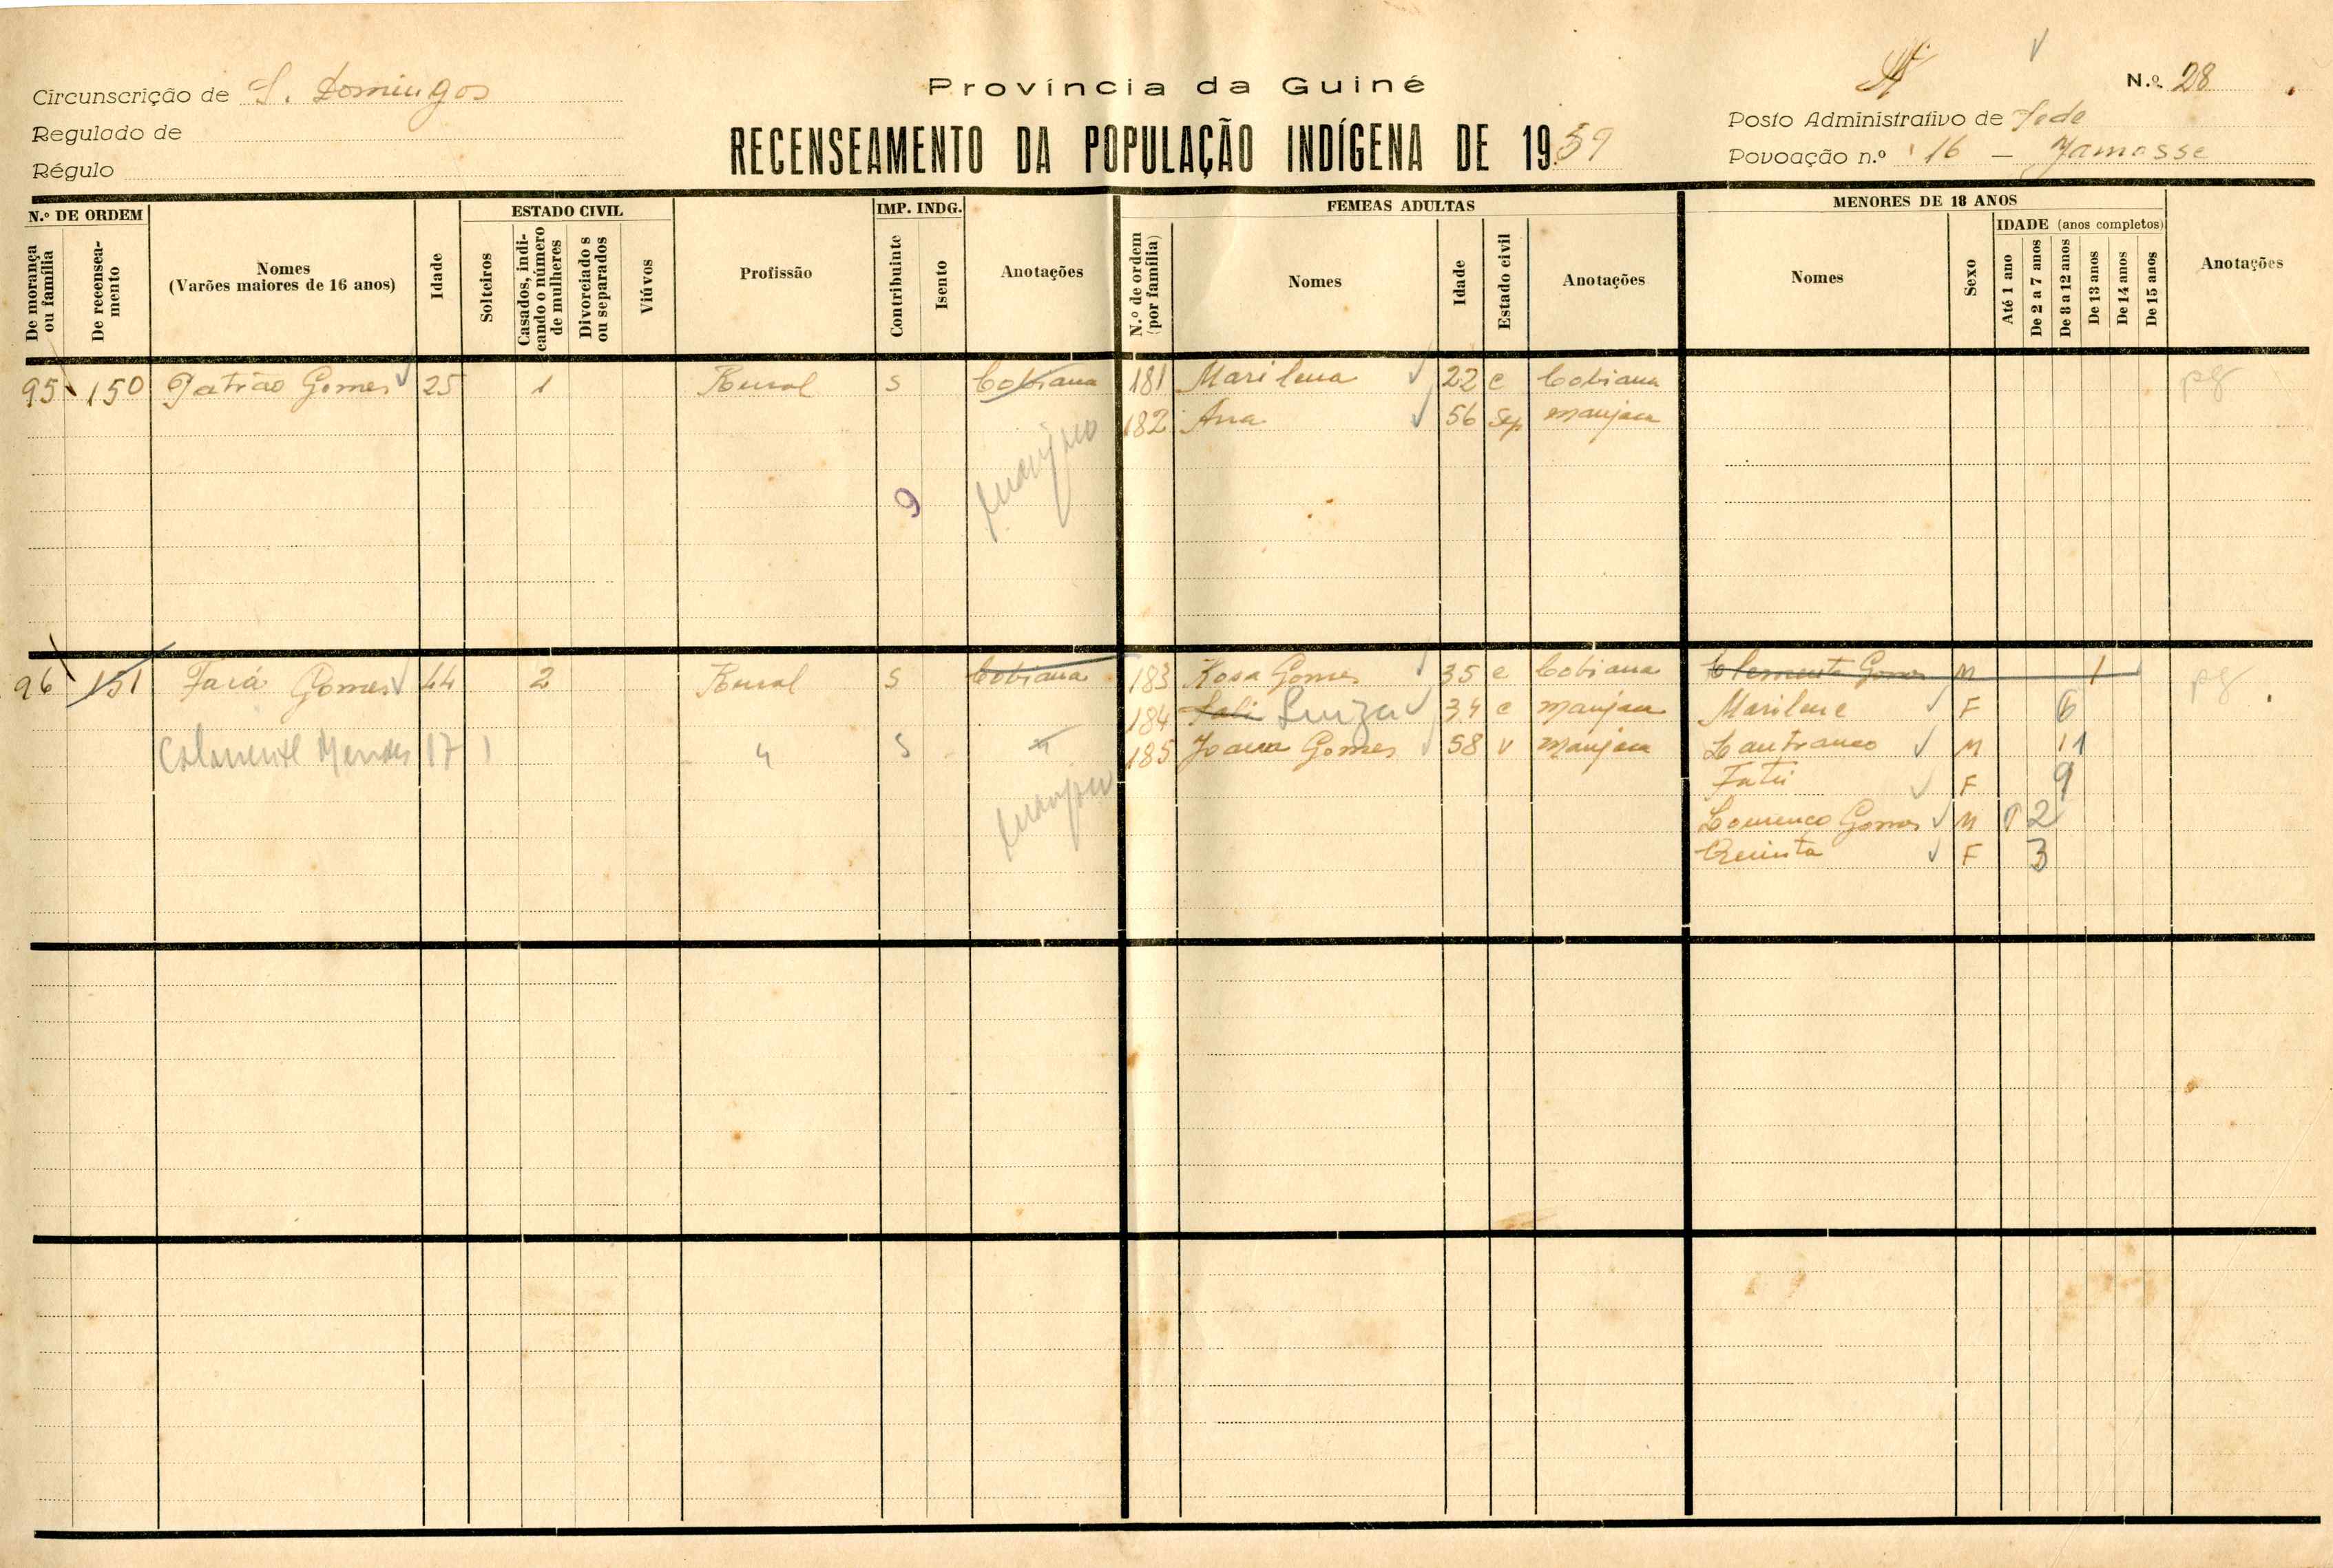 Província da Guiné
Circunscrição de S. Domingos
Regulado de
Régulo
RECENSEAMENTO DA POPULAÇÃO INDÍGENA DE 1959
N.º 28
Posto Administrativo de Sede
Povoação n.º 16 — Jamasse
N.º DE ORDEM
De morança ou família
De recenseamento
Nomes
(Varões maiores de 16 anos)
Idade
ESTADO CIVIL
Solteiros
Casados, indicando o número de mulheres
Divorciados ou separados
Viúvos
Profissão
IMP. INDG.
Contribuinte
Isento
Anotações
FEMEAS ADULTAS
N.º de ordem (por família)
Nomes
Idade
Estado civil
Anotações
MENORES DE 18 ANOS
Nomes
Sexo
IDADE (anos completos)
Até 1 ano
De 2 a 7 anos
De 8 a 12 anos
De 13 anos
De 14 anos
De 15 anos
Anotações
95 150 Patrão Gomes 25 1 Rural S Cobiana 181 Marilena 22 c Cobiana pg
182 Ana 56 Sep manjaca
manjaco
9
96 151 Gomes 44 2 Rural S Cobiana 183 Rosa Gomes 35 c Cobiana Clemente Gomes M 1 pg
184 Sali Luiza 34 c manjaca Marilene F 6
Mendes 17 1 " S " 185 Joana Gomes 58 v manjaca M 11
F 9
manjaco
Gomes M 2
Quinta F 3